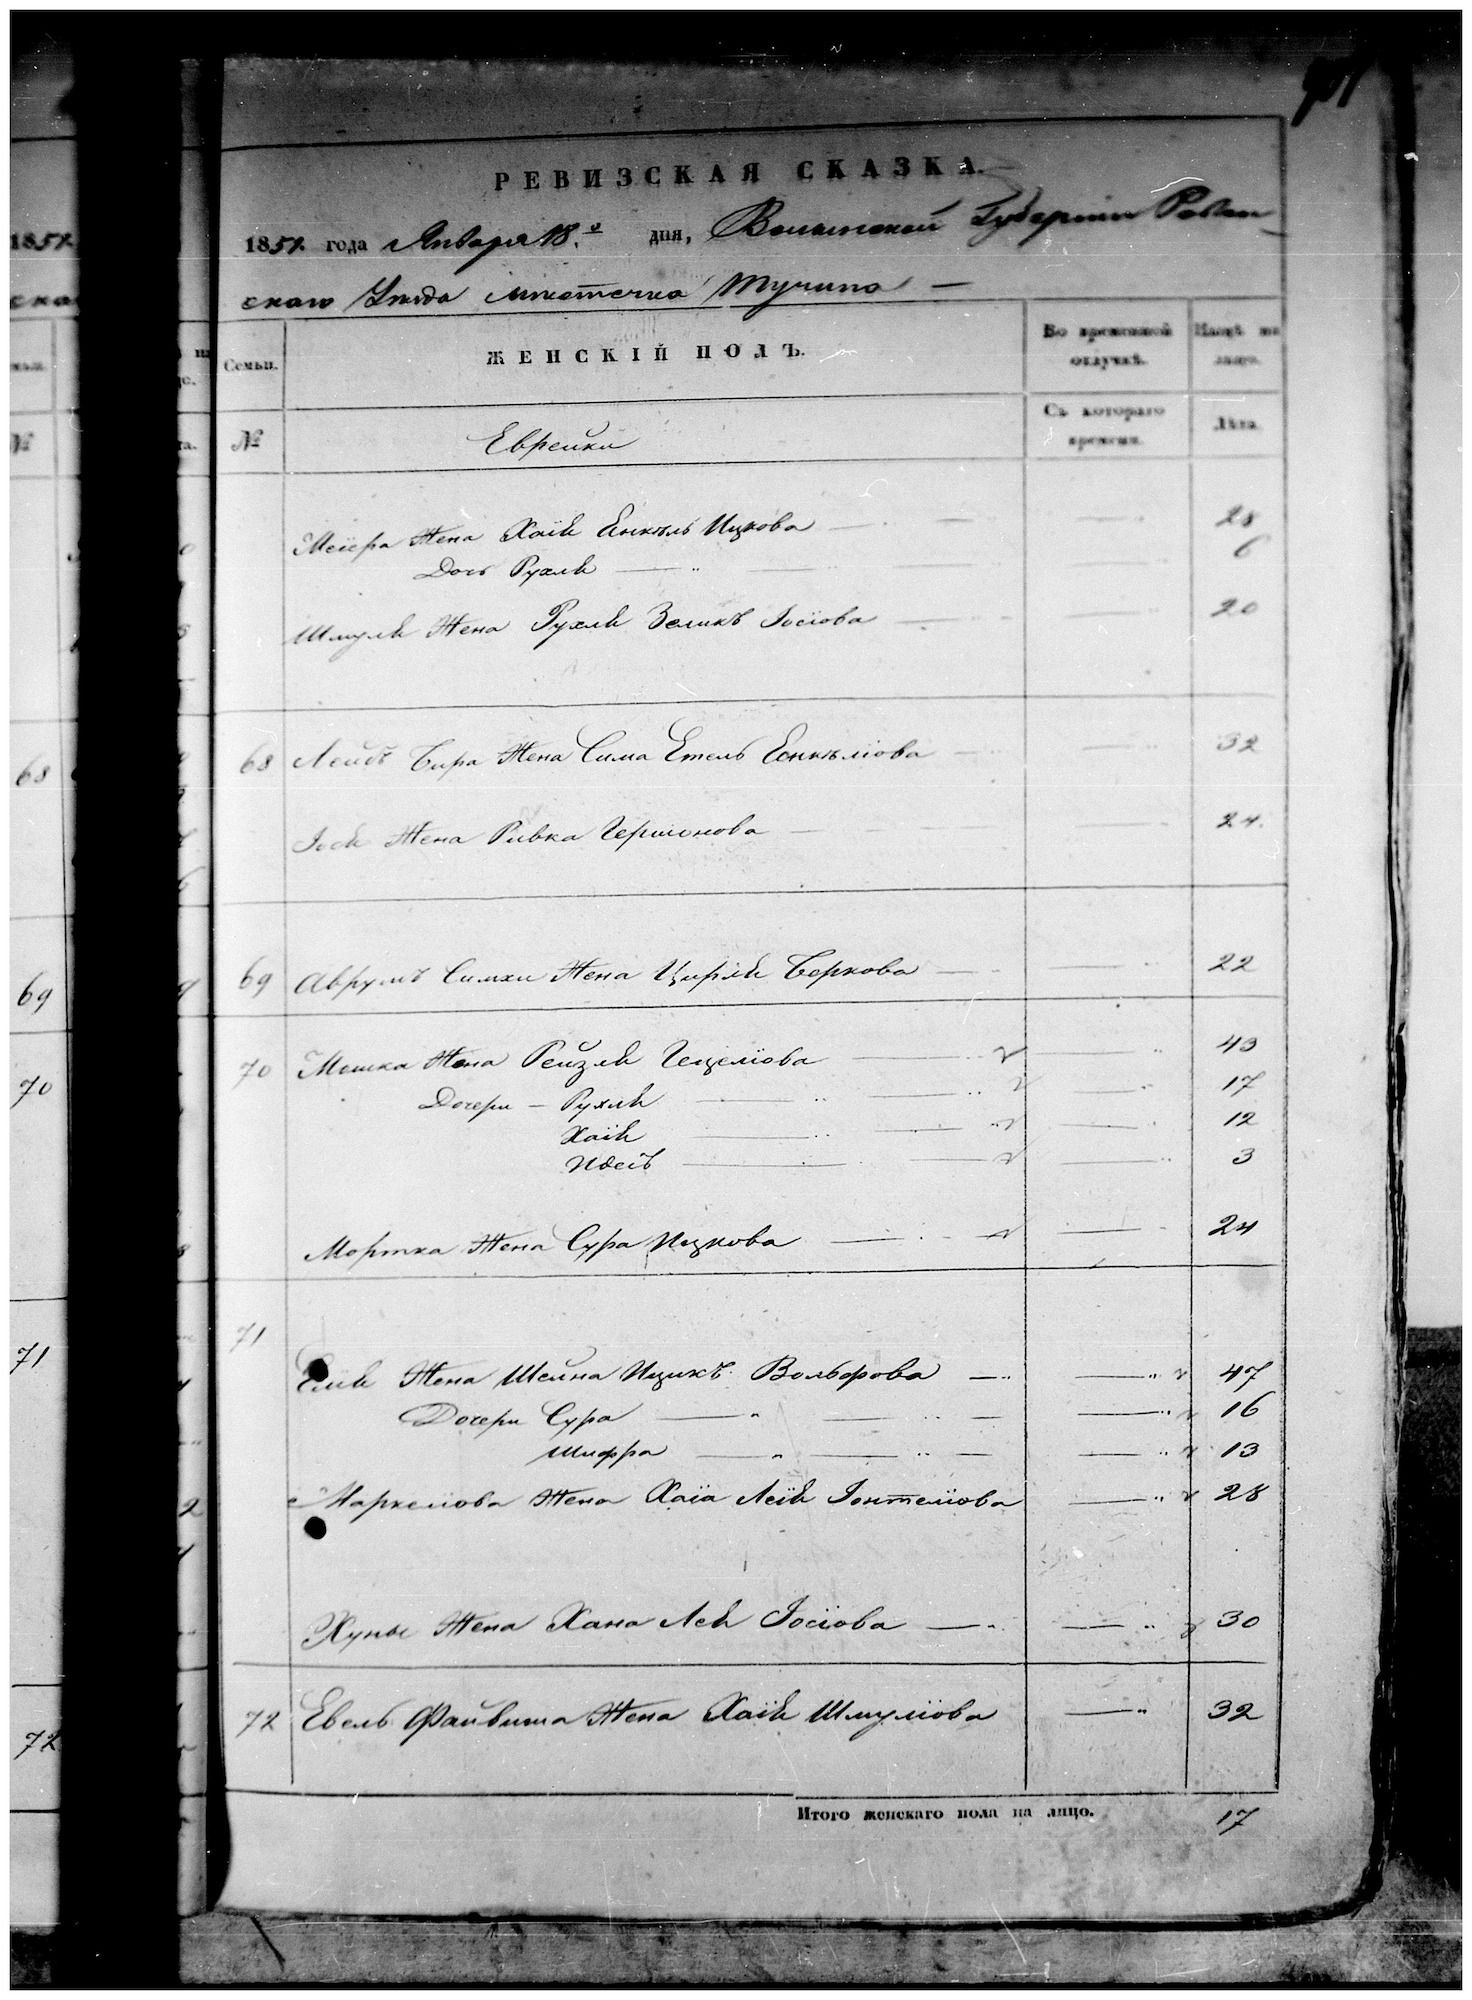 РЕВИЗСКАЯ СКАЗКА.
1858 года Января 18.го дня, Волынской Губернии Ровен
скаго Уезда местечка Тучина —
Семьи.
ЖЕНСКІЙ ПОЛЪ.
Во временной отлучкѣ.
На лицо.
№
Еврейки
Съ котораго времени.
Лѣта.
Меіера Жена Хаія Енкель Ицкова 28
Дочь Рухля 6
Шмуля Жена Рухля Зеликъ Іосіова 20
68 Лейбъ Бира Жена Сима Етель Еонкеліова 32
Іося Жена Ривка Гершонова 24.
69 Аврумъ Симхи Жена Цирля Беркова 22
70 Мошка Жена Рейзля Гецеліова 43
Дочери — Рухля 17
Хаія 12
Идесъ 3
Мортка Жена Сура Ицкова 24
71
Еліи Жена Шейна Ицикъ Вольфова 47
Дочери Сура 16
Шифра 13
Маркеліова Жена Хаіа Леія Іонтеліова 28
Хуны Жена Хана Лея Іосіова 30
72 Евель Файвиша Жена Хаія Шмуліова 32
Итого женскаго пола на лицо. 17
68
69
70
71
72